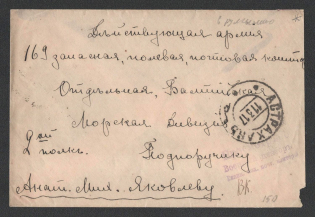 Действующая армия
169 запасная, полевая, почтовая контор
Отдельная, Балтийская
Морская Дивизия
2ой полкъ. Подпоручику
Анат. Мих. Яковлеву.
АСТРАХАНЬ